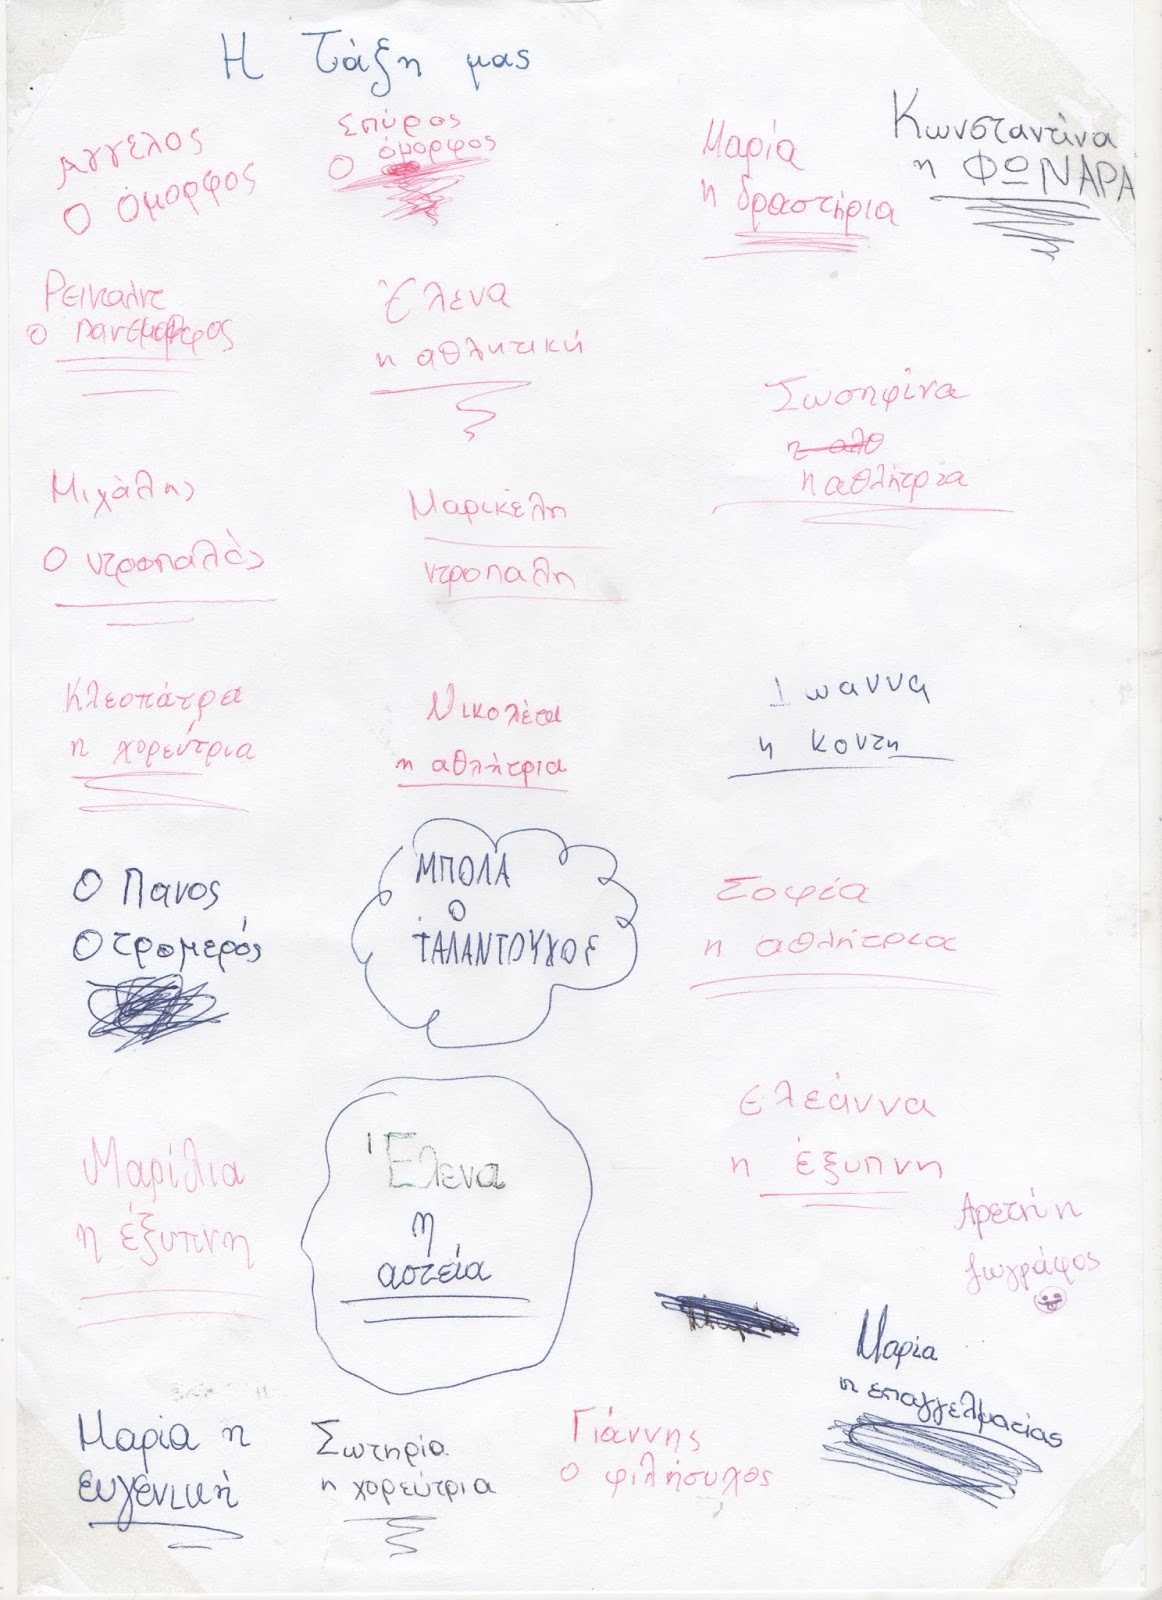 Η Τάξη μας
Αγγελος
Ο όμορφος
Σπύρος
Ο όμορφος
Μαρία
η δραστήρια
Κωνσταντίνα
η ΦΩΝΑΡΑ
Ρειναλντ
ο πανέμορφος
Έλενα
η αθλητική
Σωσηφίνα
η αθλ
η αθλήτρια
Μιχάλης
Ο ντροπαλός
Μαρικέλη
ντροπαλη
Κλεοπάτρα
η χορεύτρια
Νικολέτα
η αθλήτρια
Ιωαννα
η κοντη
Ο Πανος
Ο τρομερός
ΜΠΟΛΑ
Ο
ΤΑΛΑΝΤΟΥΧΟΣ
Σοφία
η αθλήτρια
Ελεάννα
η έξυπνη
Μαρίλια
η έξυπνη
Έλενα
η
αστεία
Αρετή η
ζωγράφος
Μαρία
Μαρία
η επαγγελματίας
Μαρία η
ευγενική
Σωτηρία
η χορεύτρια
Γιάννης
ο φιλήσυχος